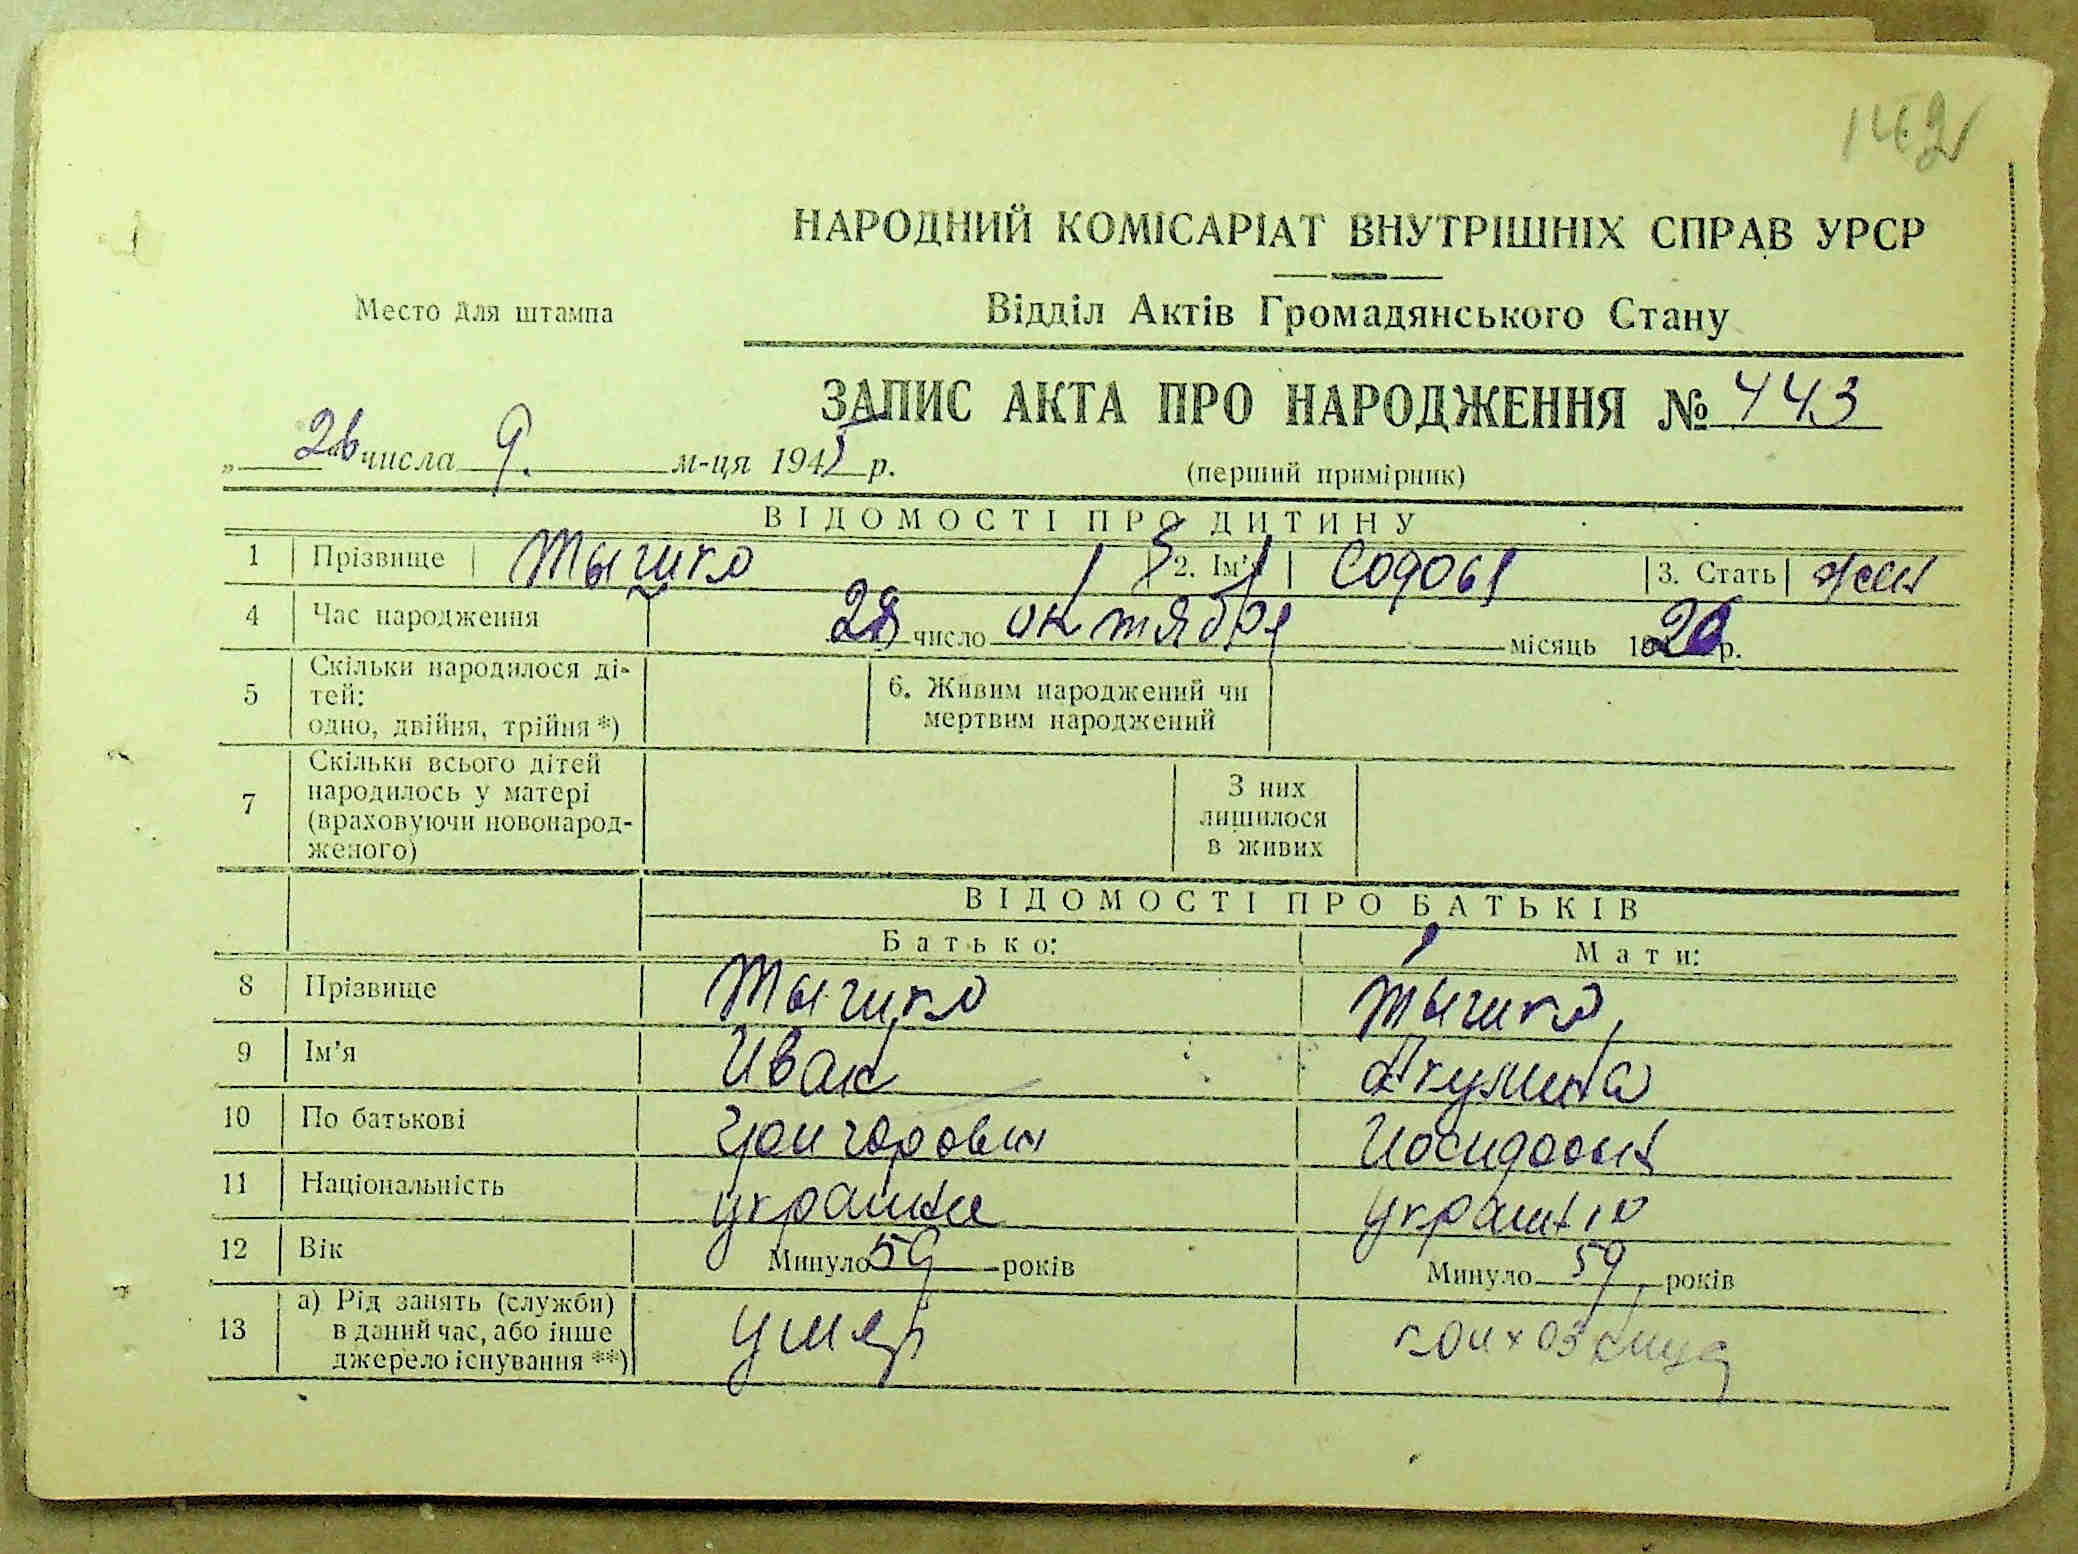 142
НАРОДНИЙ КОМІСАРІАТ ВНУТРІШНІХ СПРАВ УРСР
Место для штампа
Відділ Актів Громадянського Стану
ЗАПИС АКТА ПРО НАРОДЖЕННЯ № 443
„26" числа 9. м-ця 1945 р.
(перший примірник)
ВІДОМОСТІ ПРО ДИТИНУ
1 Прізвище 2. Ім'я 3. Стать жен
4 Час народження 28 число октября місяць 1920 р.
5 Скільки народилося ді-
тей:
одно, двійня, трійня *)
6. Живим народжений чи
мертвим народжений
7 Скільки всього дітей
народилось у матері
(враховуючи новонарод-
женого)
З них
лишилося
в живих
ВІДОМОСТІ ПРО БАТЬКІВ
Батько: Мати:
8 Прізвище
9 Ім'я Иван Акулина
10 По батькові Григорович
11 Національність
12 Вік Минуло 59 років Минуло 59 років
13 а) Рід занять (служби)
в даний час, або інше
джерело існування **)
умер колхозница